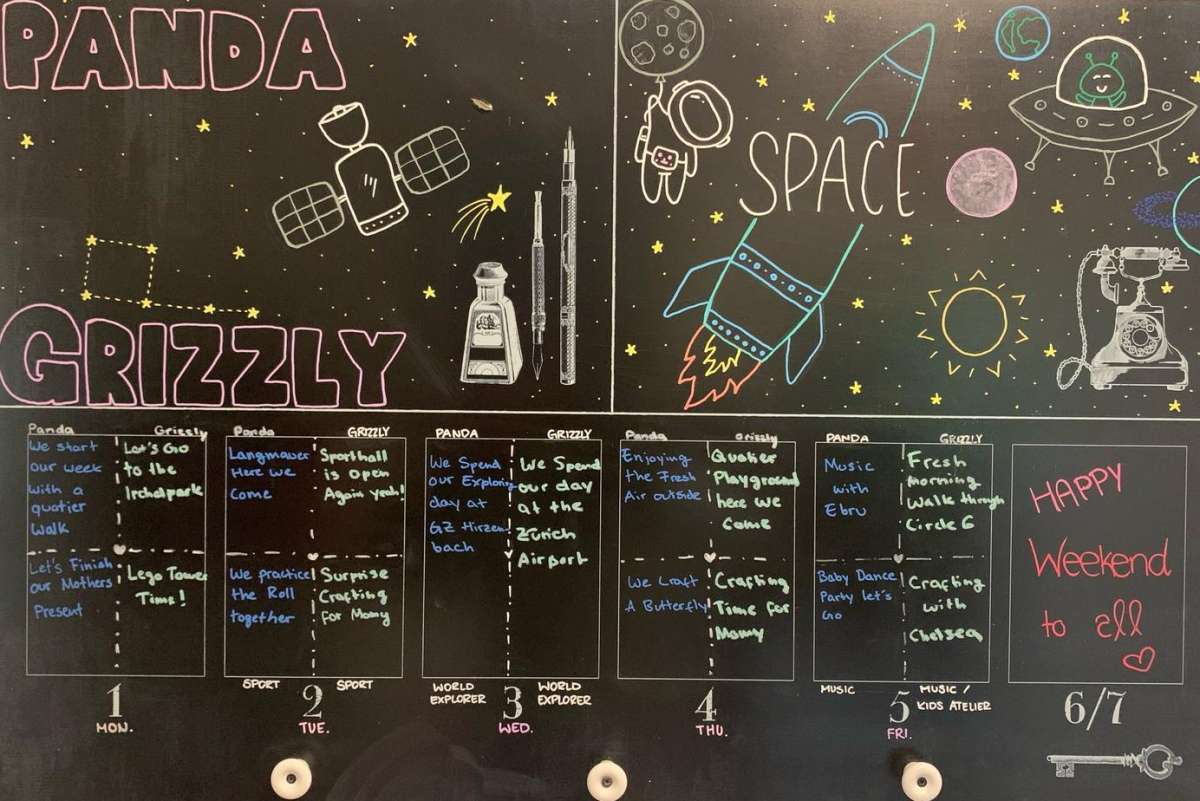 PANDA
GRIZZLY
SPACE
Panda
We start
our week
with a
quatier
Walk
Let's Finish
our Mothers
Present
Grizzly
Let's Go
to the
Irchelpark
Lego Tower
Time!
1
MON.
Panda
Langmauer
Here we
come
We practice
the Roll
together
GRIZZLY
Sporthall
is open
Again yeah!
Surprise
Crafting
For Momy
SPORT
SPORT
2
TUE.
PANDA
We Spend
our Exploring
day at
GZ Hirzen
bach
GRIZZLY
We Spend
our day
at the
Zürich
Airport
WORLD
EXPLORER
WORLD
EXPLORER
3
WED.
Panda
Enjoying
the Fresh
Air outside
We Craft
A Butterfly
Grizzly
Quatier
Playground
here we
come
Crafting
Time for
Momy
4
THU.
PANDA
Music
with
Ebru
Baby Dance
Party let's
Go
GRIZZLY
Fresh
Morning
Walk through
Circle 6
Crafting
with
Chelsea
MUSIC
MUSIC /
KIDS ATELIER
5
FRI.
HAPPY
Weekend
to all
6/7